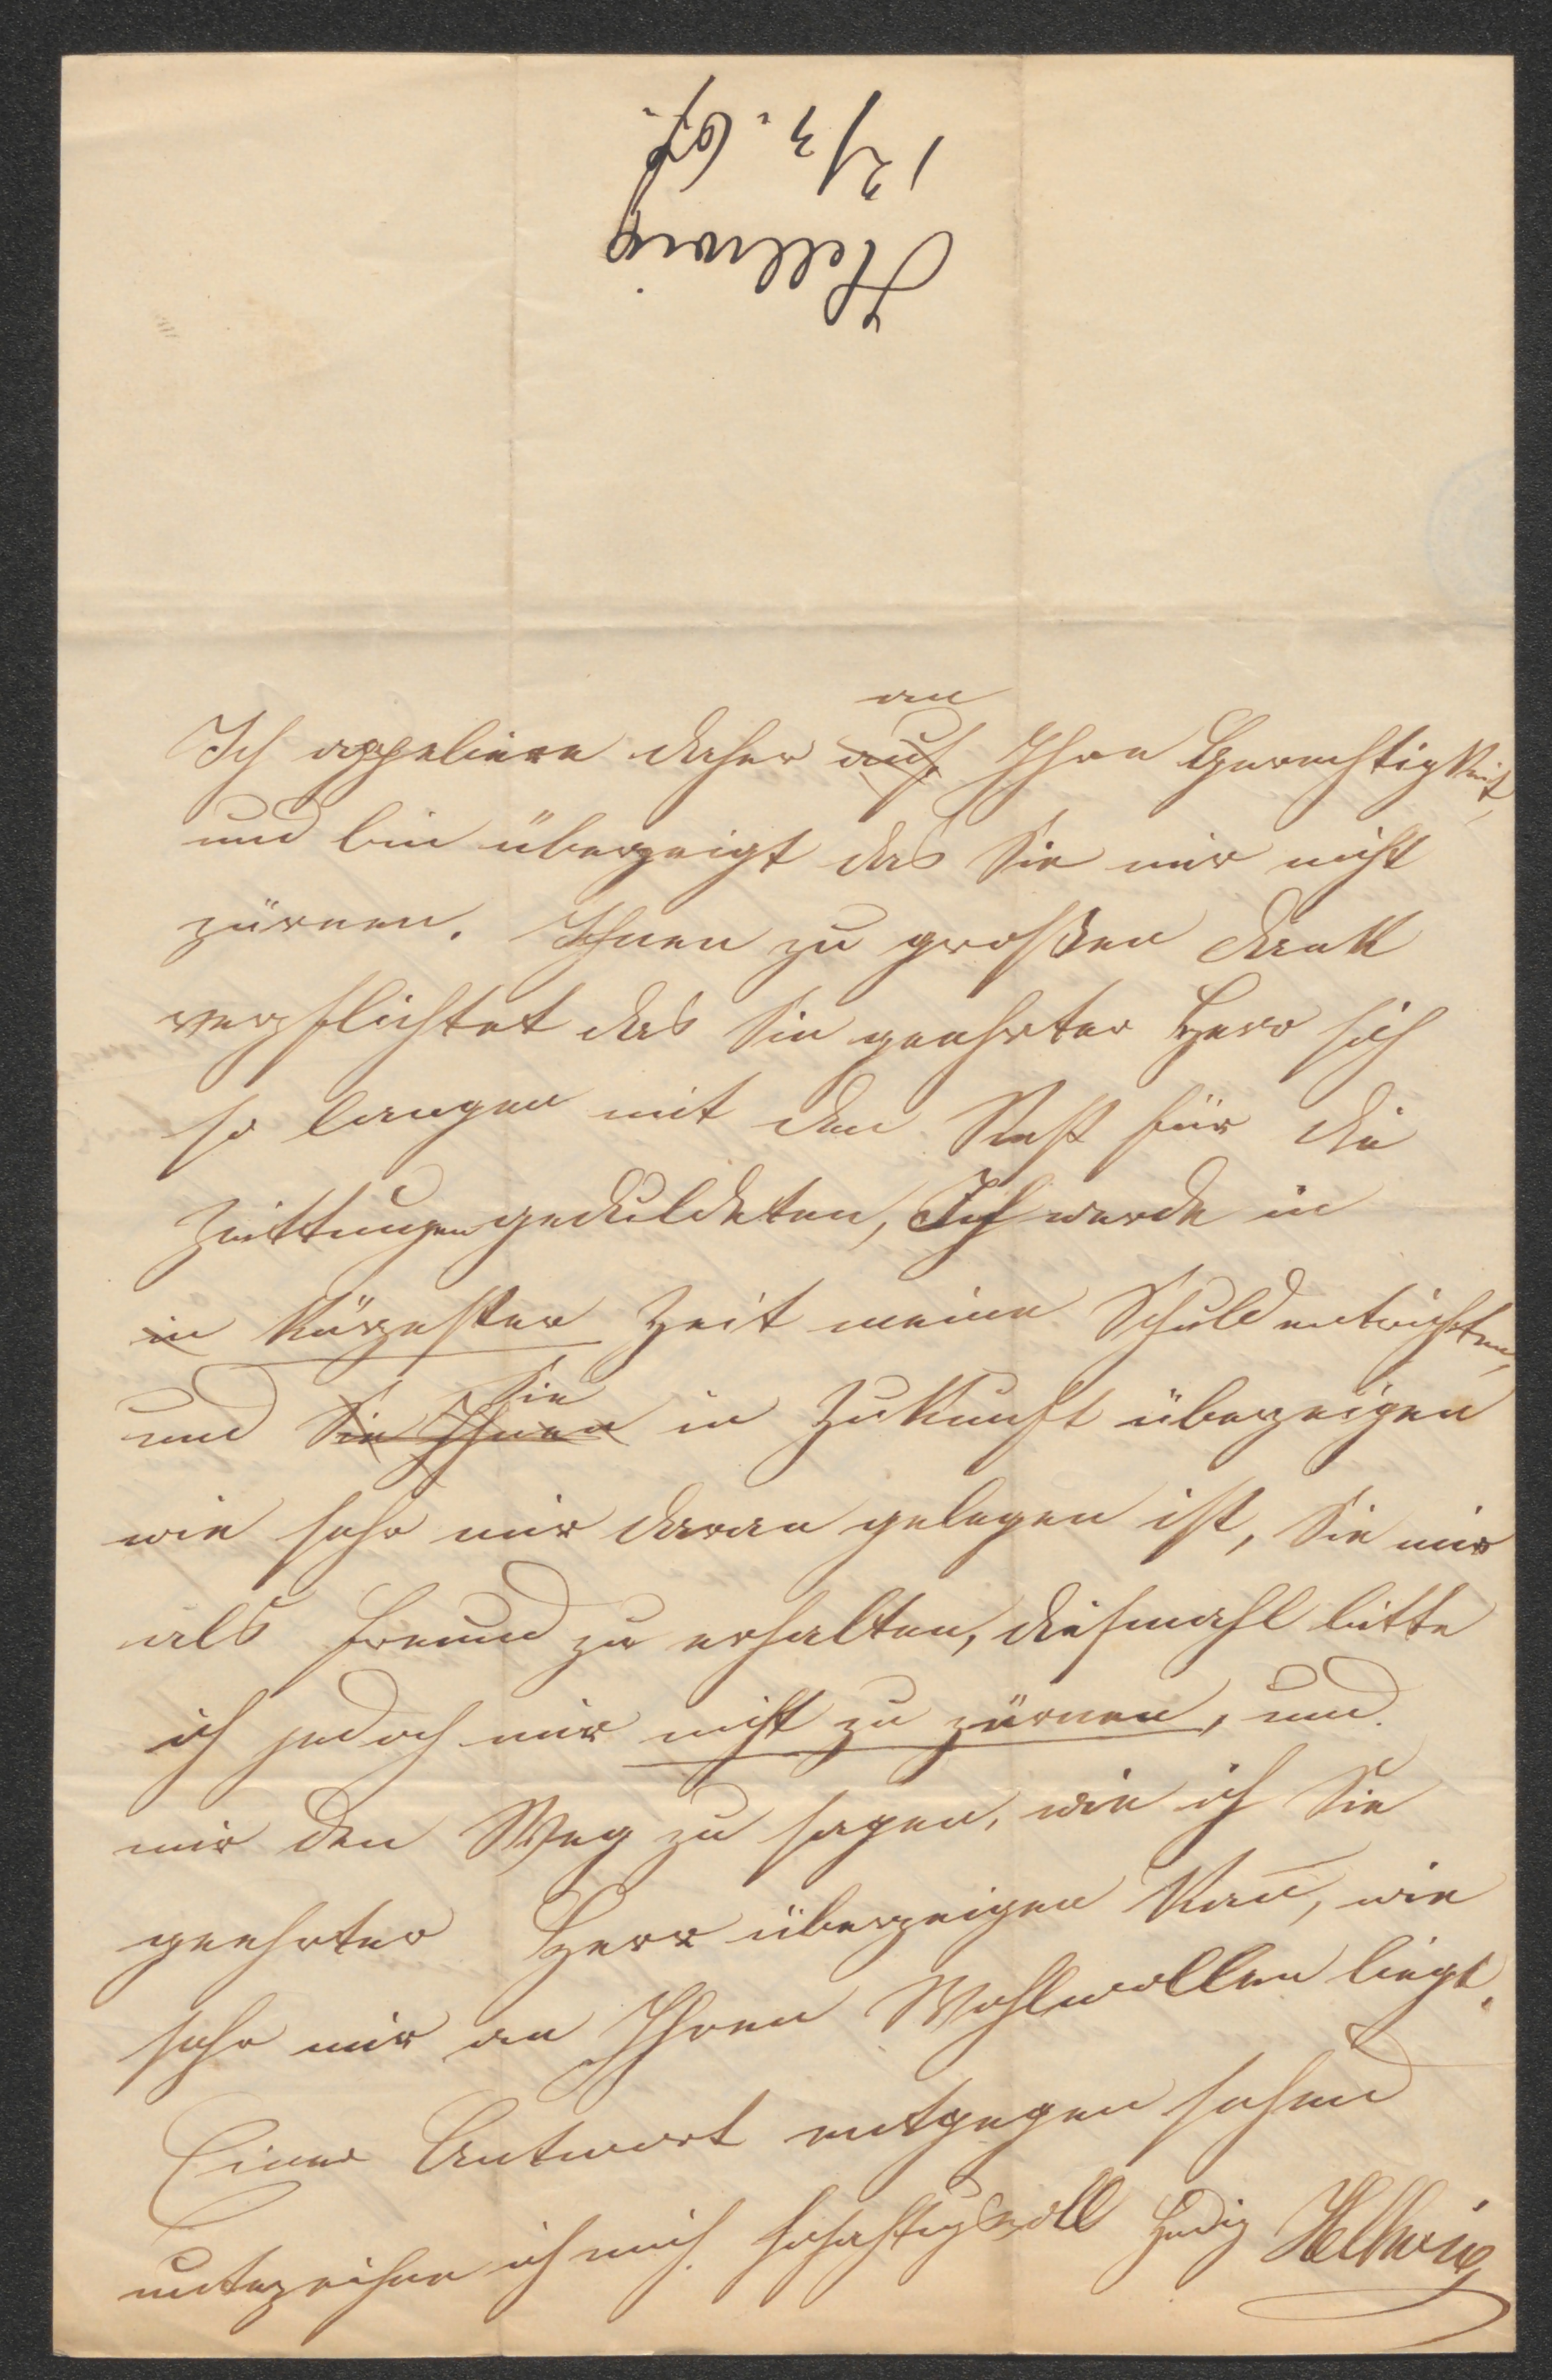 Hellwig
12/3. 67.
an
Ich appeliere daher auf Ihre Gerechtigkeit,
und bin überzeigt das Sie mir nicht
zürnen. Ihnen zu großen Dank
verpflichtet das Sie geehrter Herr sich
so langen mit den Rest für die
Zeittungen geduldeten, Ich werde in
in kürzester Zeit meine Schuld entrichten,
Sie
und Sie Ihnen in Zukunft überzeigen
wie sehr mir daran gelegen ist, Sie mir
als Freund zu erhalten, diesmahl bitte
ich jedoch mir nicht zu zürnen, und
mir den Weg zu sagen, wie ich Sie
geehrter Herr überzeigen kan̄, wie
sehr mir an Ihren Wohlwollen liegt.
Einer Antwort entgegen sehend
unterzeichne ich mich hochachtungsvoll Hellwig